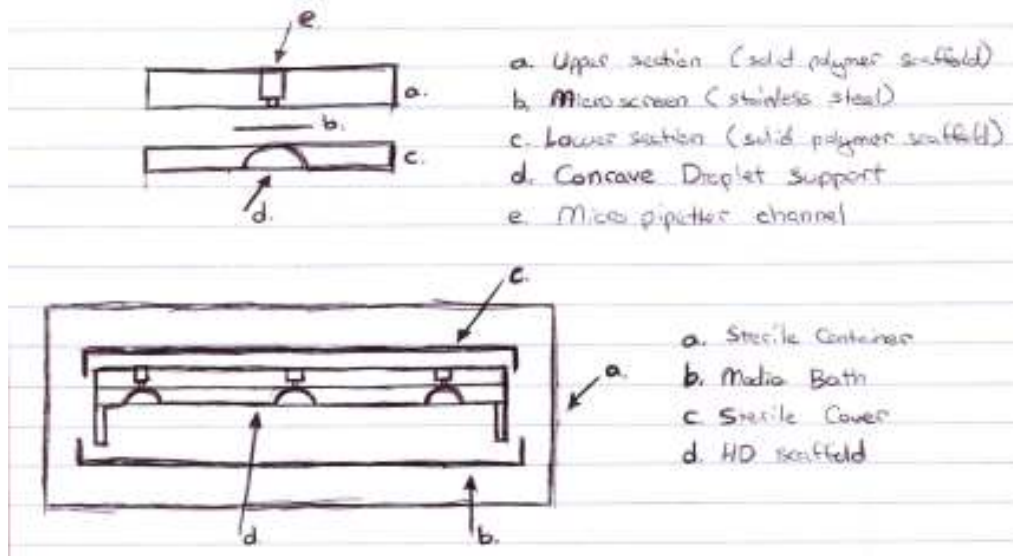 e.
a.
b.
c.
d.
a. Upper section (solid polymer scaffold)
b. Microscreen (stainless steel)
c. Lower section (solid polymer scaffold)
d. Concave Droplet Support
e. Micro pipetter channel
c.
a.
d.
b.
a. Sterile Container
b. Media Bath
c. Sterile Cover
d. HD scaffold